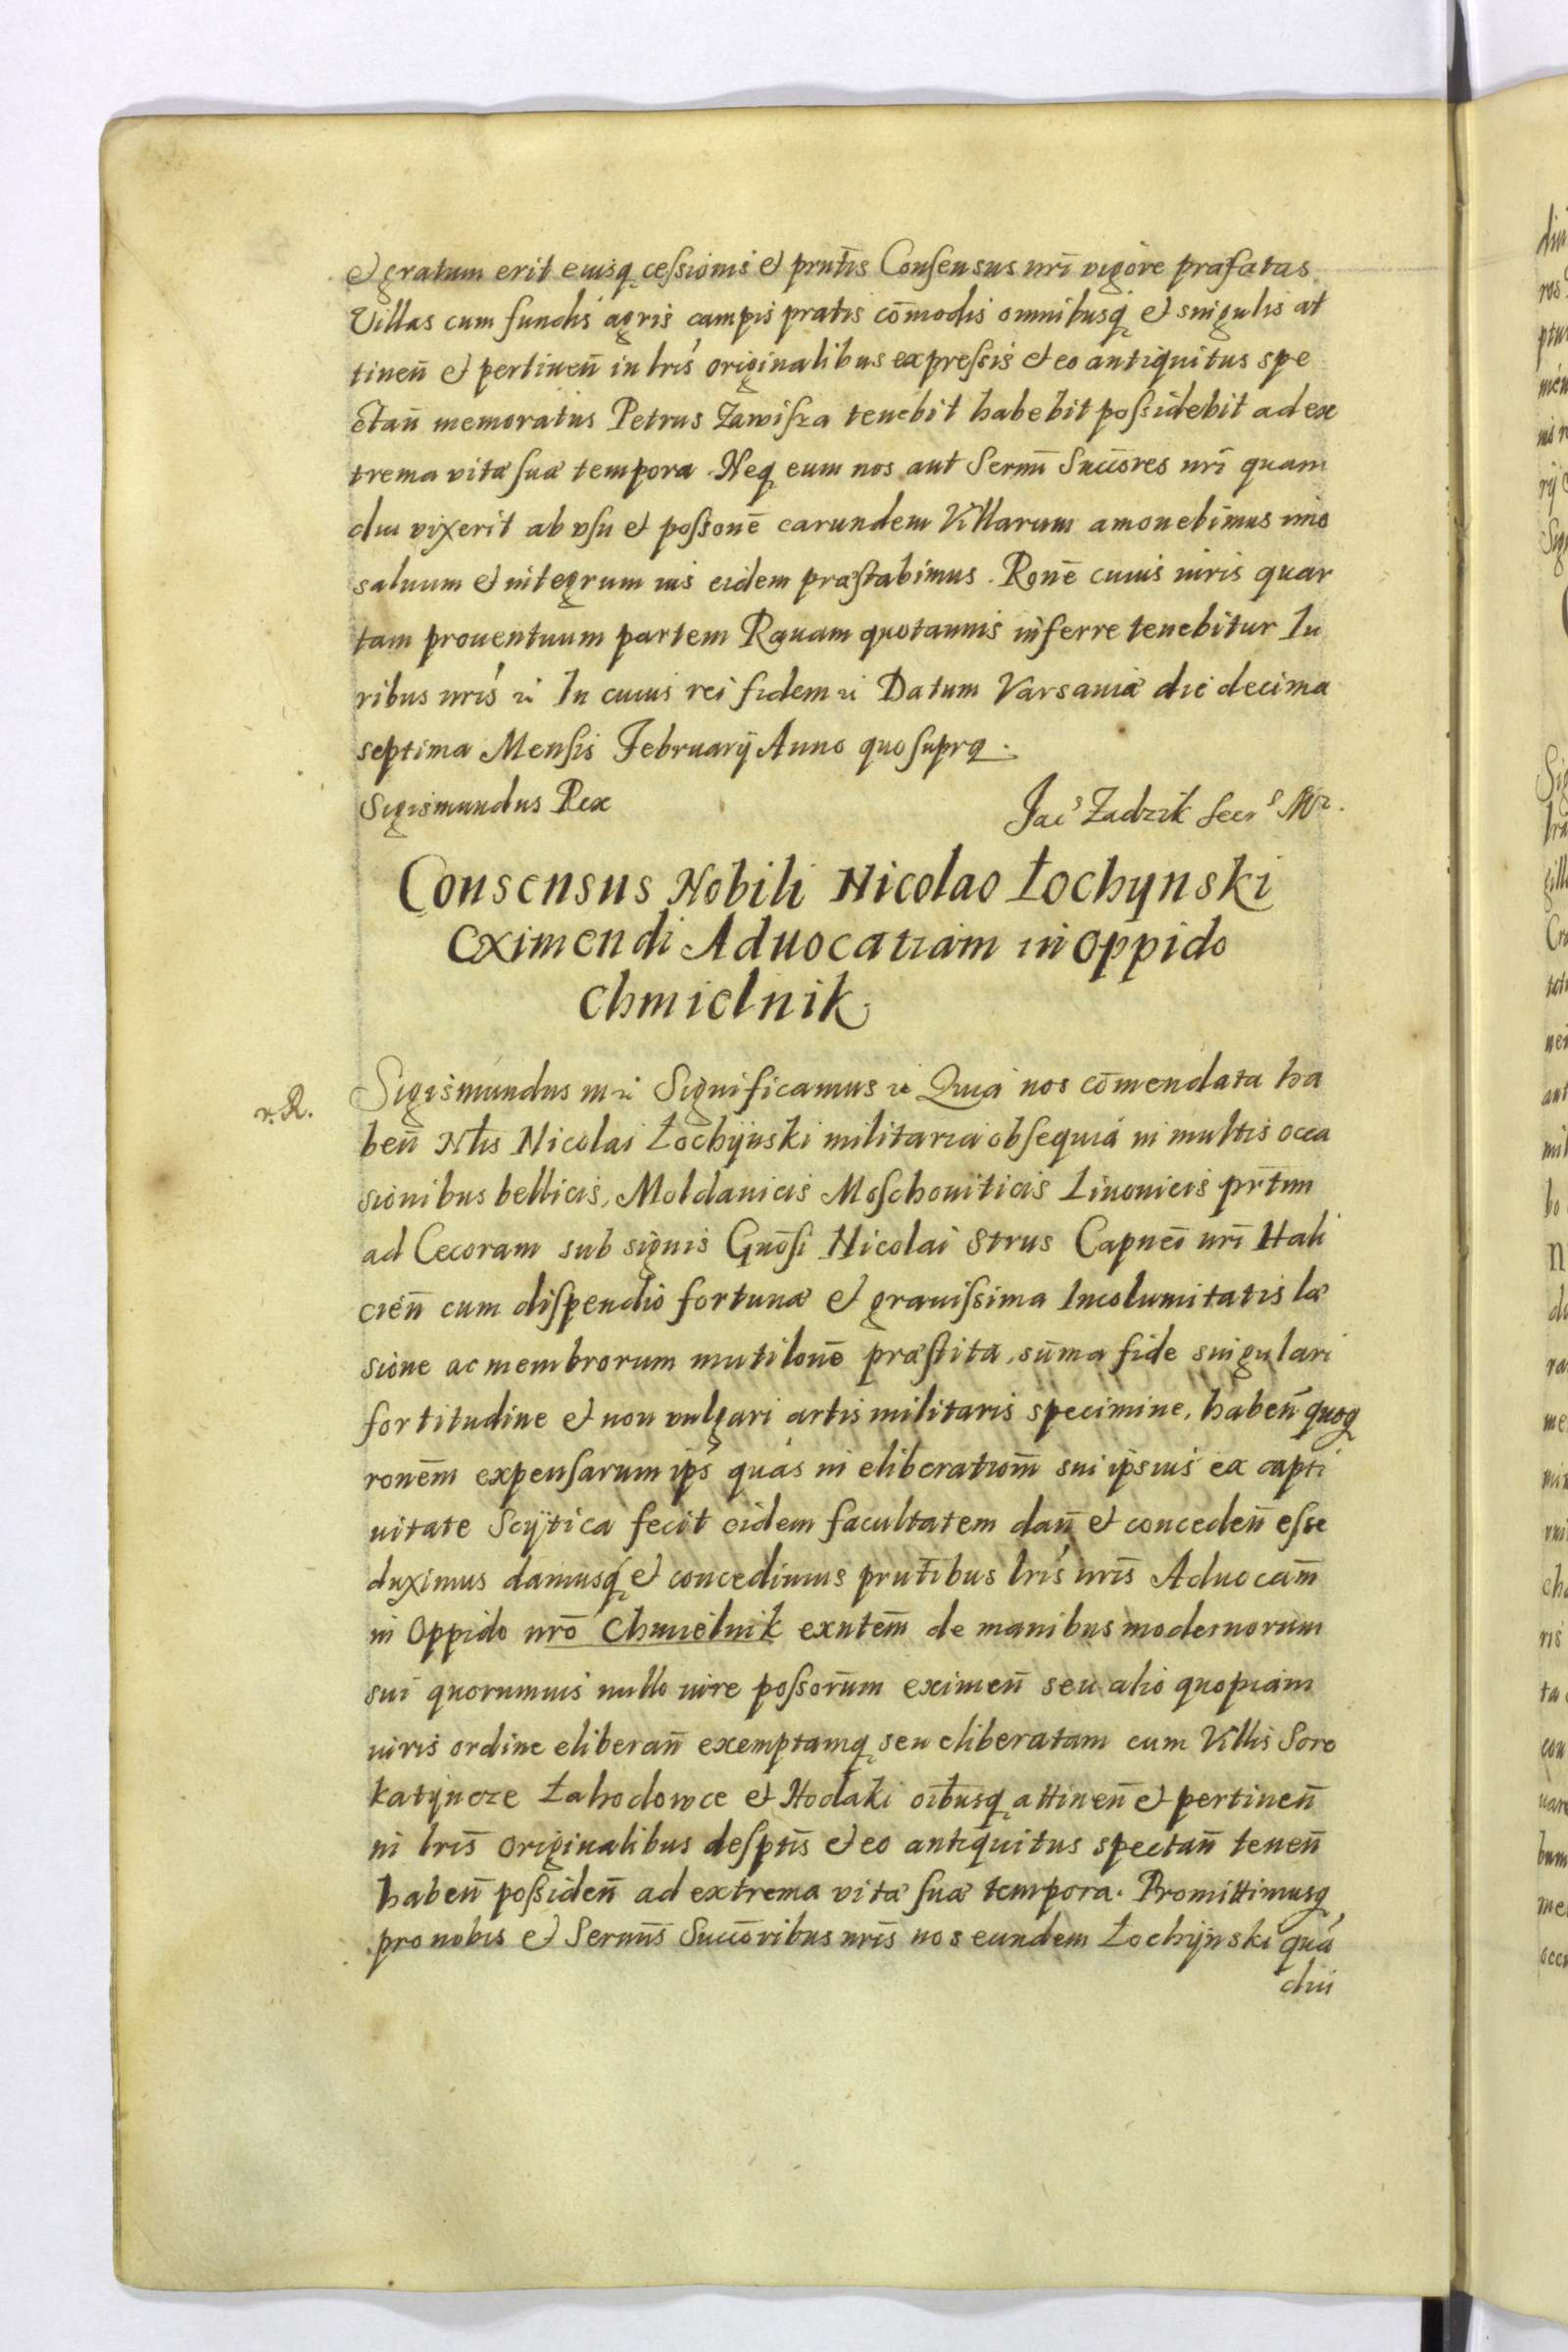 et gratum erit eiusq cessionis et prntis Consensus nri vigore præfatas
Villas cum fundis agris campis pratis comodis omnibusq et singulis at
tinen et pertinen in lris originalibus expressis et eo antiquitus spe
ctan memoratus Petrus Zawisza tenebit habebit possidebit ad ex
trema vitæ suæ tempora. Neq eum nos aut Sermi Succores nri quam
diu vixerit ab vsu et possone earundem Villarum amouebimus imo
saluum et integrum ius eidem præstabimus. Rone cuius iuris quar
tam prouentuum partem Rauam quotannis inferre tenebitur Iu
ribus nris etc In cuius rei fidem etc Datum Varsauiæ die decima
septima Mensis February Anno quo supra.
Sigismundus Rex
Jacs Zadzik Secrs Mr.
Consensus Nobili Nicolao Łochynski
Eximendi Aduocatiam in oppido
Chmielnik
r. R.
Sigismundus III etc Significamus etc Quia nos comendata ha
ben Nlis Nicolai Łochÿnski militaria obsequia in multis occa
sionibus bellicis, Moldauicis Moschouiticis Liuonicis prtim
ad Cecoram sub signis Gnosi Nicolai Strus Capnei nri Hali
cien cum dispendio fortunæ et grauissima Incolumitatis læ
sione ac membrorum mutilone præstita, suma fide singulari
fortitudine et non vulgari artis militaris specimine, haben quoq
ronem expensarum ips quas in eliberationm sui ipsius ex capti
uitate Scÿtica fecit eidem facultatem dan et conceden esse
duximus damusq et concedimus prntibus lris nris Aduocam
in Oppido nro Chmielnik exntem de manibus modernorum
sui quorumuis nullo iure possorum eximen seu alio quopiam
iuris ordine eliberan exemptamq seu eliberatam cum Villis Soro
katÿncze Łahodowce et Hodaki oibusq attinen et pertinen
in lris originalibus desptis et eo antiquitus spectan tenen
haben possiden ad extrema vitæ suæ tempora. Promittimusq
pro nobis et Sermis Succoribus nris nos eundem Łochÿnski qua
diu